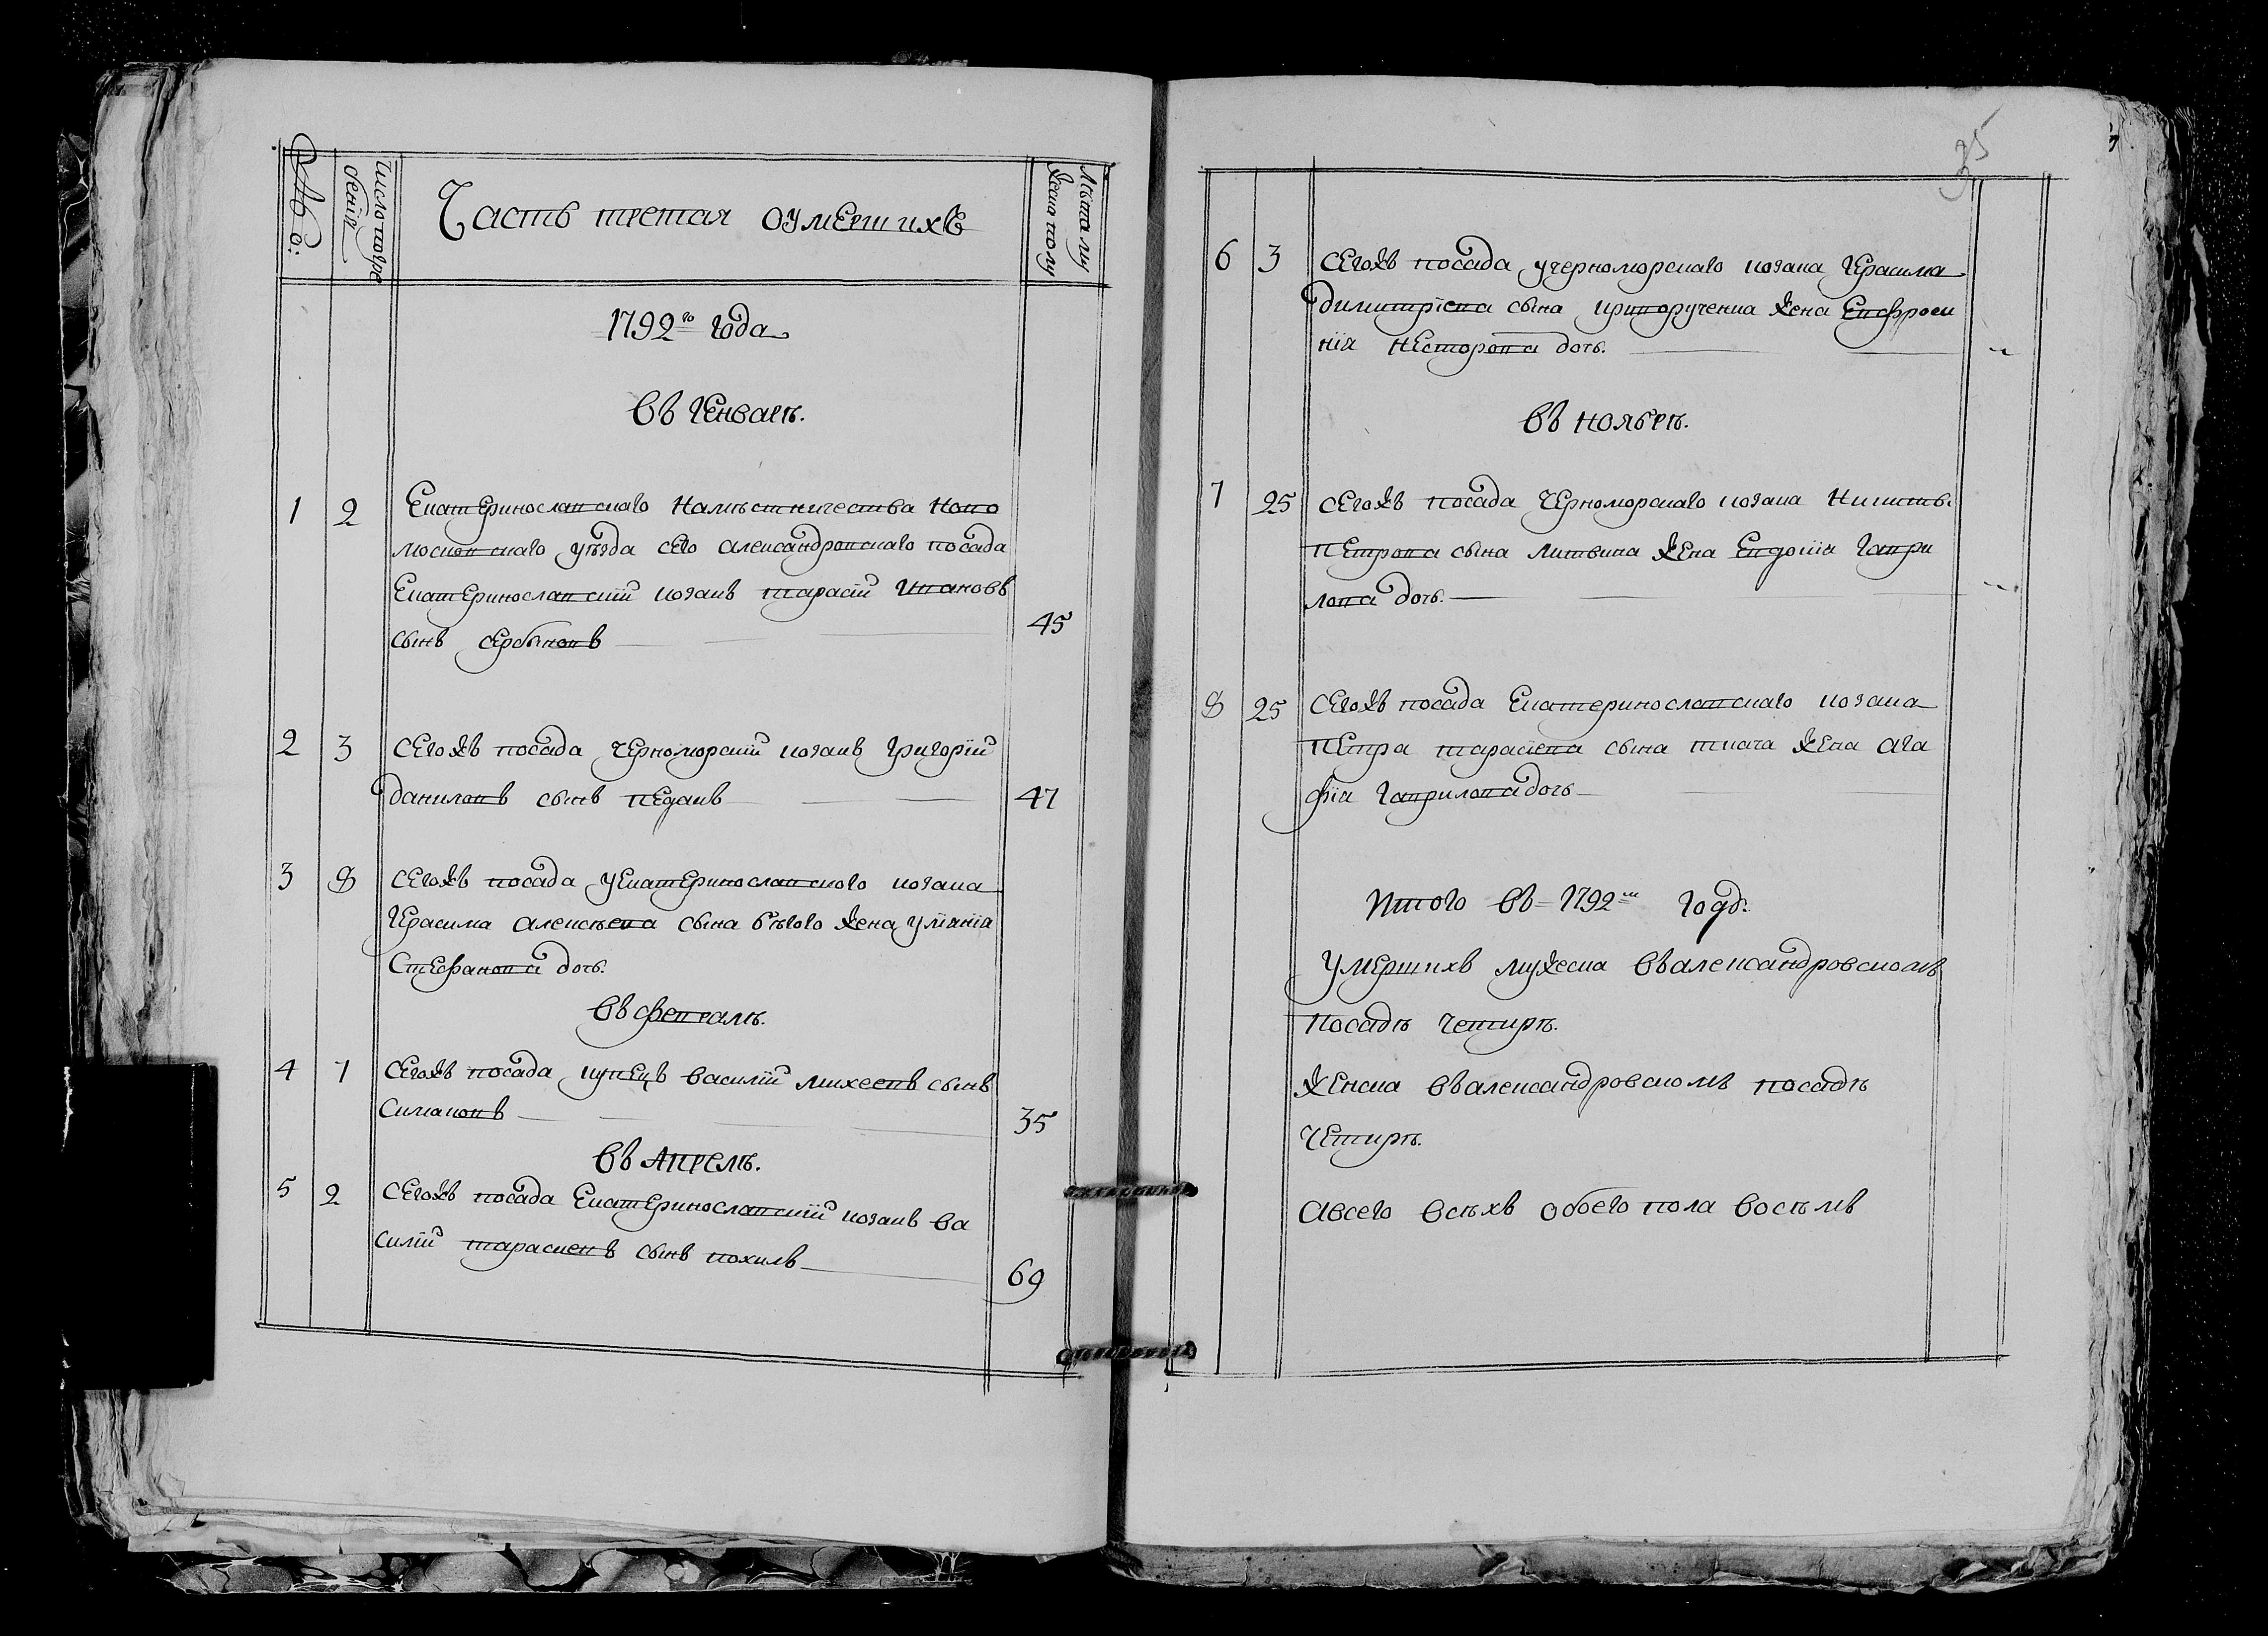 № о:
Число погре
бенія
Часть третая оумершихъ
Лѣта му
жеска полу
1792го года
въ Генварѣ.
1 2 Екатеринославскаго намѣстничества ново
московскаго уѣзда сего александровскаго посада
Екатеринославский козакъ тарасий Ивановъ
сынъ сербиновъ 45
2 3 Сегожъ посада черноморский козакъ григорий
даниловъ сынъ педакъ 47
3 8 Сегожъ посада у Екатеринославского козака
Герасима алексѣева сына бѣгого жена улияния
Стефанова дочь.
въ февралѣ.
4 7 Сегожъ посада купецъ василий михеевъ сынъ
Симаковъ 35
въ Апрелѣ.
5 2 Сегожъ посада Екатеринославский козакъ ва
силий тарасиевъ сынъ похилъ 69
35
6 3 Сегожъ посада у черноморскаго козака Герасима
димитриева сына жена Евфроси
ния Несторова дочь.
въ ноябрѣ.
7 25 Сегожъ посада Черноморскаго козака Никиты
Петрова сына литвина жена Евдокия Гаври
лова дочь.
8 25 Сегожъ посада Екатеринославскаго козака
Петра тарасиева сына ткача жена ага
фия Гаврилова дочь
Итого въ 1792м годѣ.
Умершихъ мужеска въ александровскомъ
посадѣ четирѣ.
Женска въ александровскомъ посадѣ
четирѣ.
А всего всѣхъ обоего пола восѣмъ